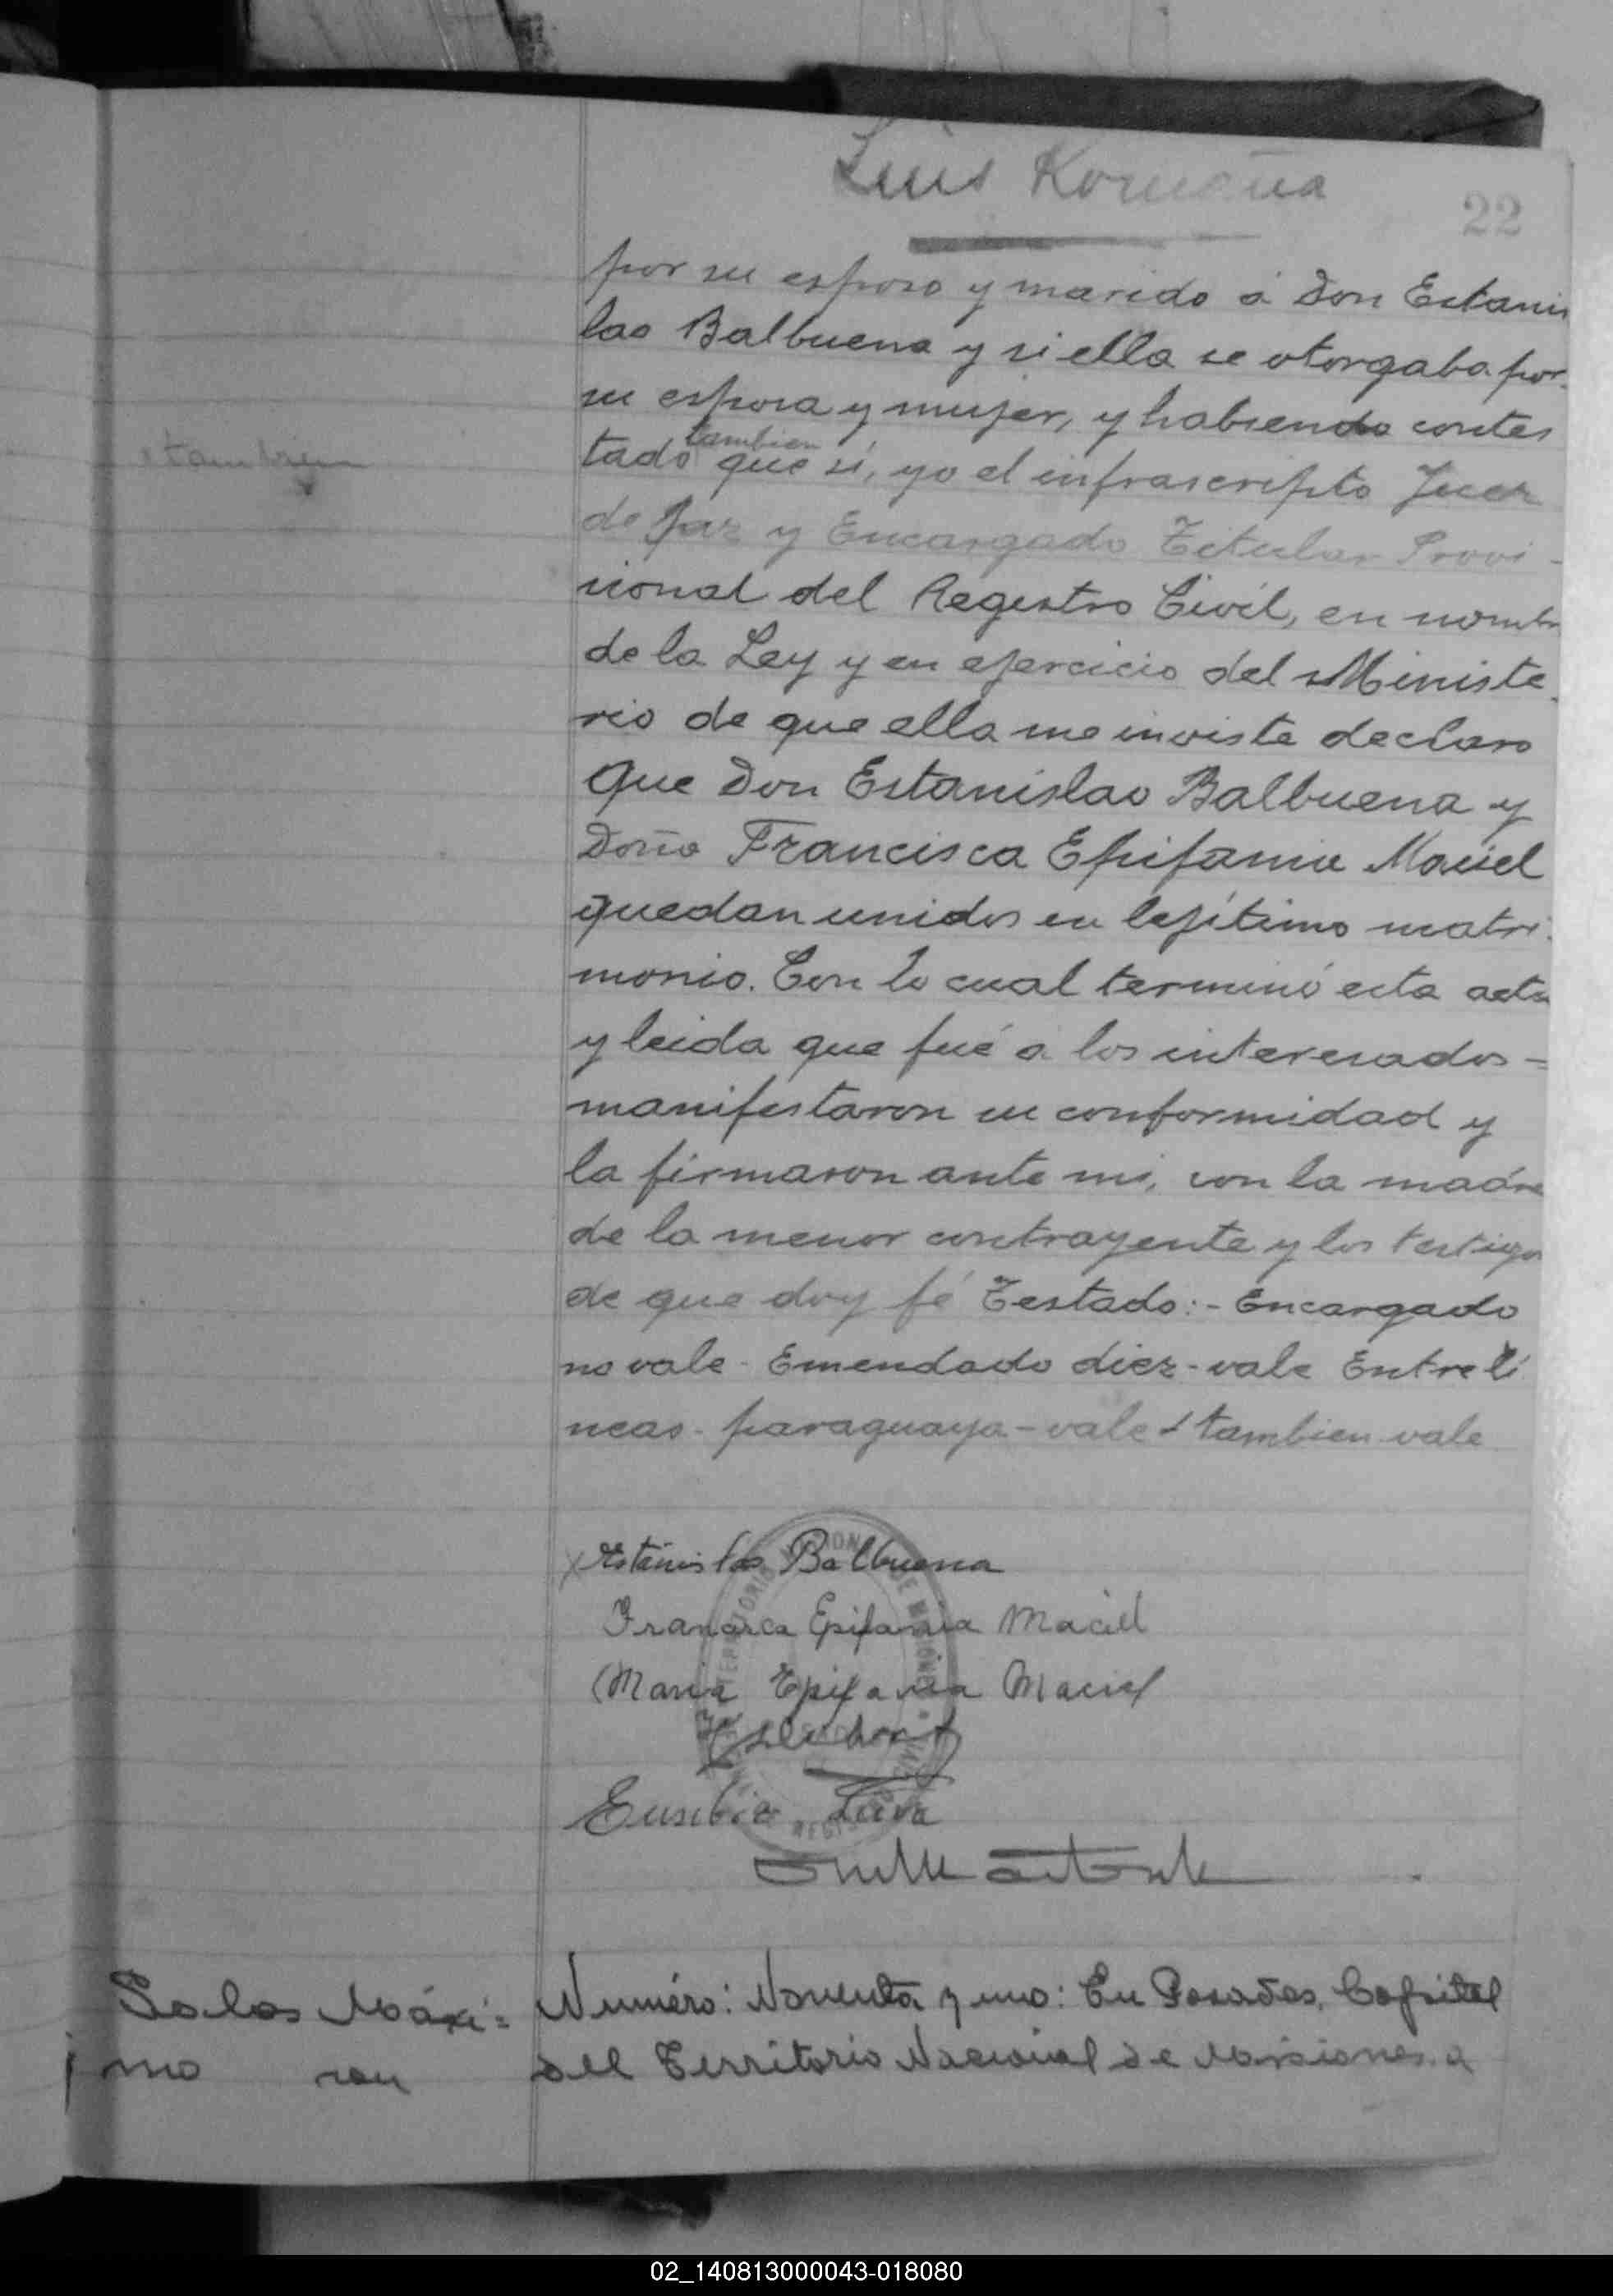 Luis
22
por su esposo y marido á Don Estanis
lao Balbuena y si ella se otorgaba por
su esposa y mujer, y habiendo contes
tado tambien que sí, yo el infrascripto Juez
tambien
de Paz y Encargado Titular Provi-
sional del Registro Civil, en nombre
de la Ley y en ejercicio del Ministe
rio de que ella me inviste declaro
Que Don Estanislao Balbuena y
Doña Francisca Epifania Maciel
quedan unidos en lejítimo matri-
monio. Con lo cual terminó esta acta
y leida que fué a los interesados =
manifestaron su conformidad y
la firmaron ante mi, con la madre
de la menor contrayente y los testigos
de que doy fé Testado:- Encargado
no vale - Emendado diez - vale Entrelí
neas - paraguaya - vale - tambien vale
Estanislao Balbuena
Francisca Epifania Maciel
Maria Epifania Maciel
Eusebio Leiva
Salas Máxi=
mo con
Numéro: Noventa y uno: En Posadas, Capital
del Territorio Nacional de Misiones a
02_140813000043-018080